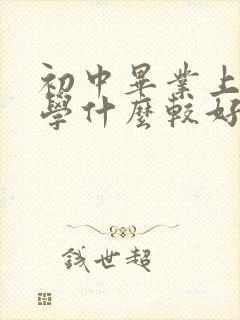 初中畢業上
學什麼較好
錢世超